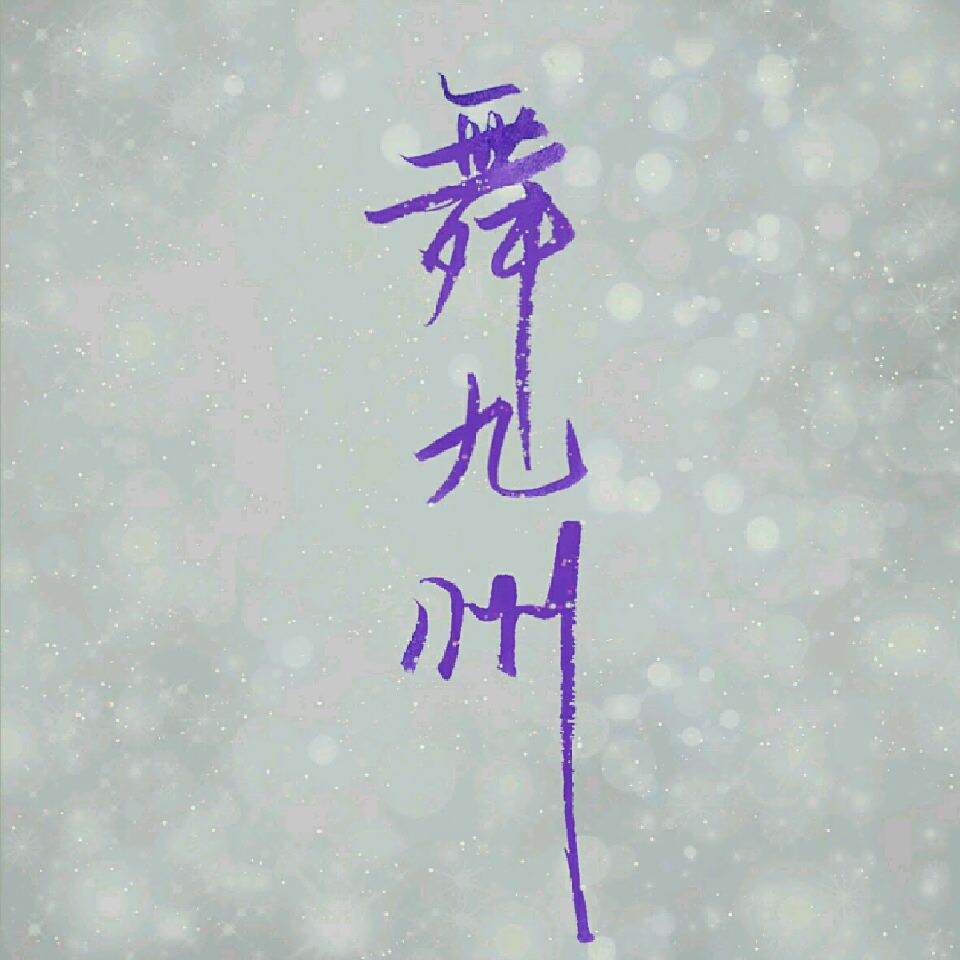 舞九州